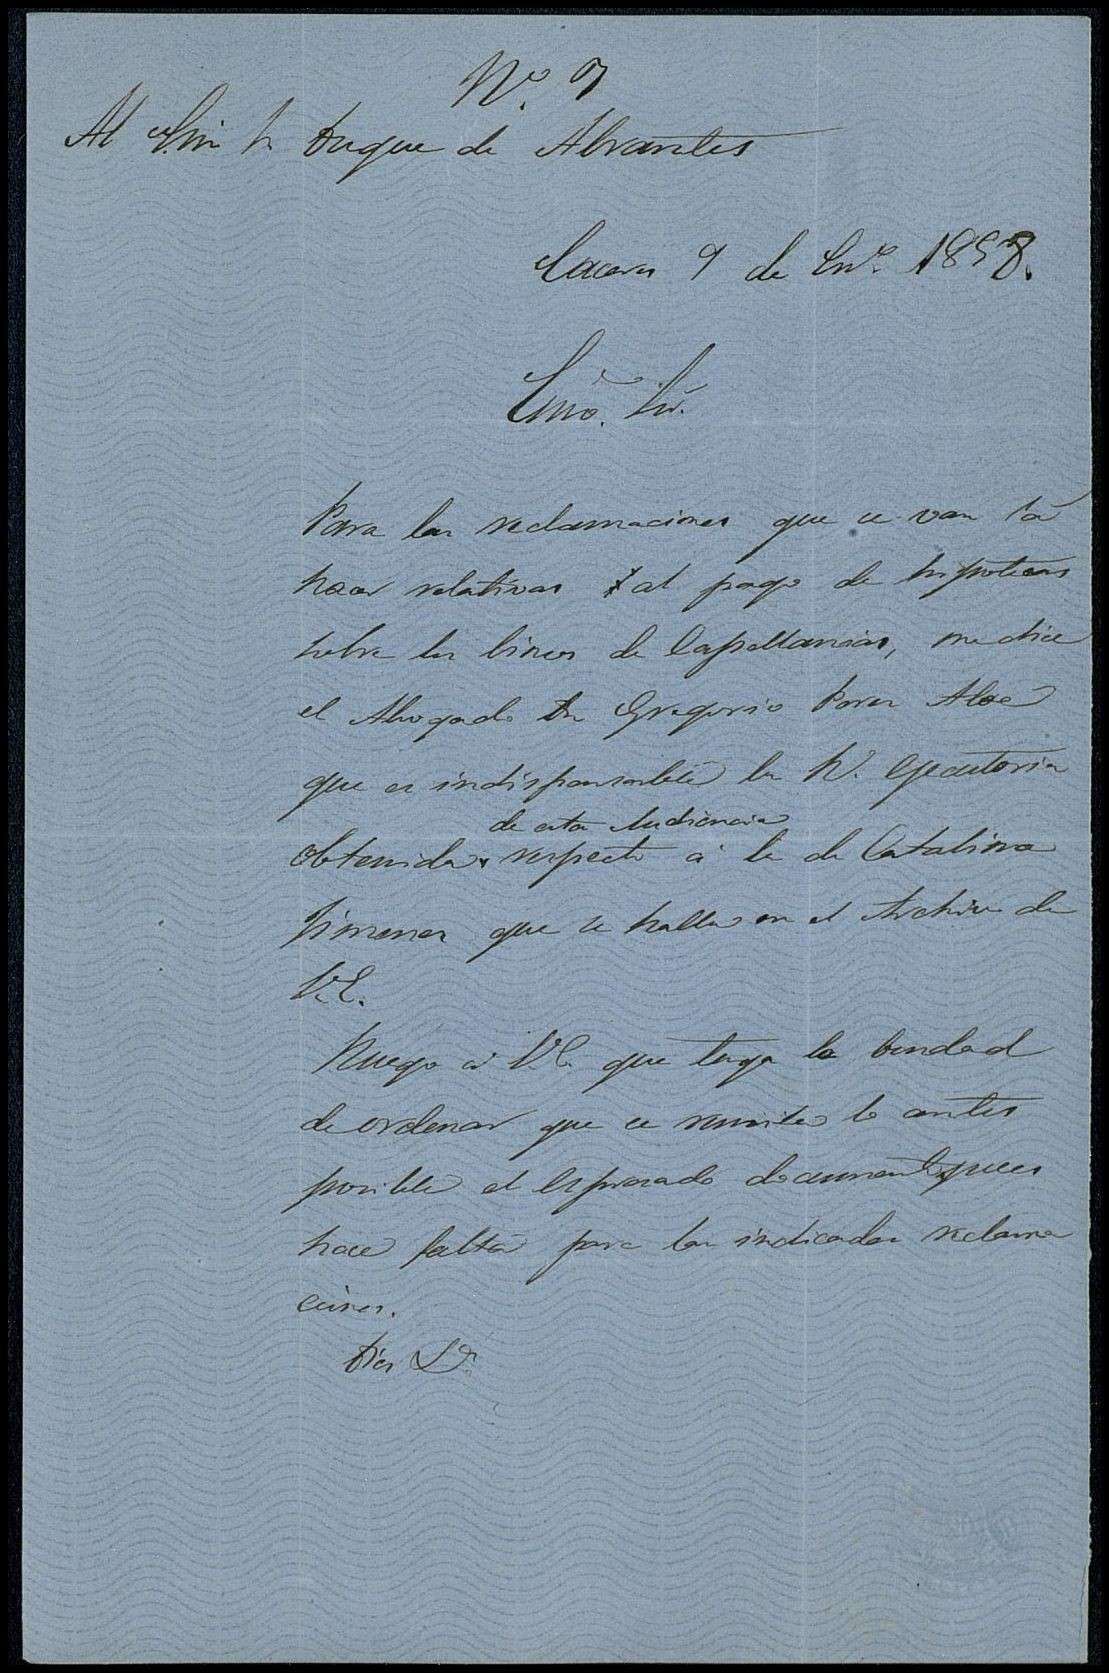 Nº 7
Al Sr. Duque de Abrantes
Caceres 9 de En.º 1898.
Exmo. Sr.
Para las reclamaciones que se van á
hacer relativas al pago de hipotecas
sobre los bienes de Capellanias, me dice
el Abogado Dn Gregorio
que es indispensable la R. ejecutoria
de esta Audiencia
obtenida respecto á la de Catalina
Jimenez que se halla en el Archivo de
V.E.
Ruego á V.E. que tenga la bondad
de ordenar que se remita lo antes
posible el espresado documento pues
hace falta para las indicadas reclama
ciones.
Dios